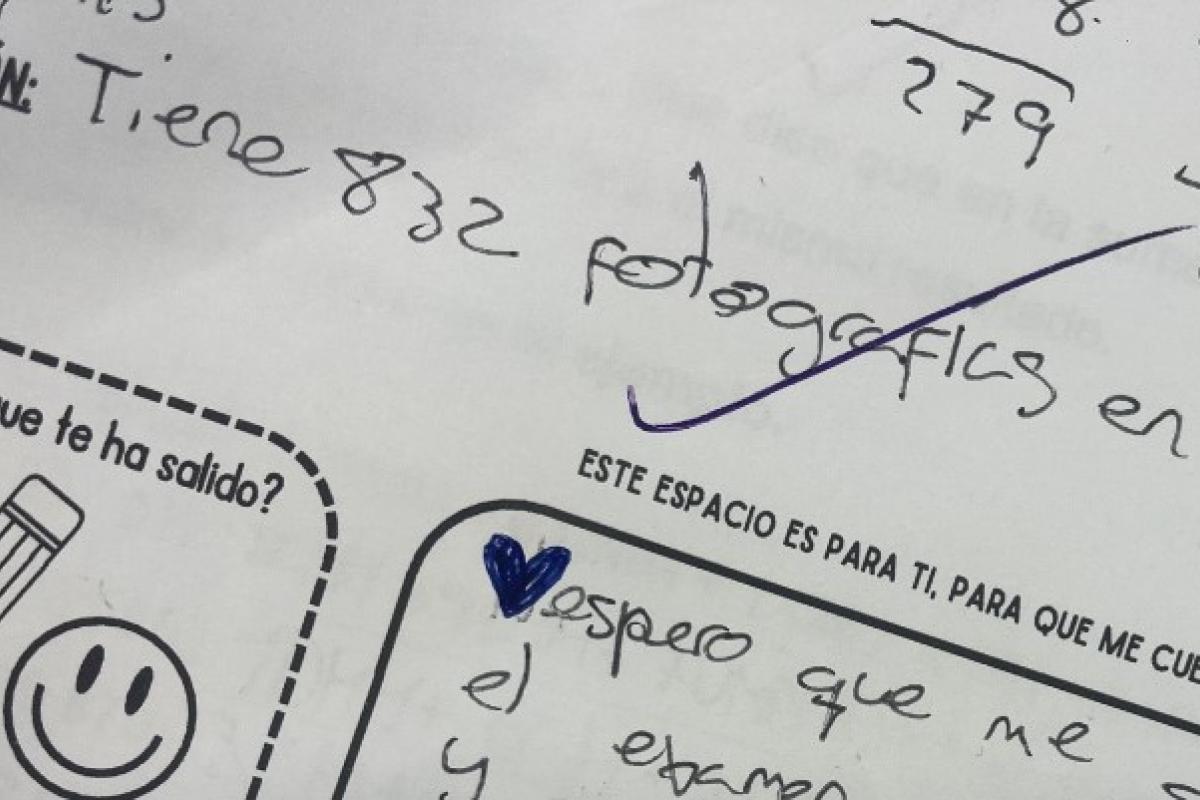 8.
279
N: Tiene 832 fotografias en
ue te ha salido?
ESTE ESPACIO ES PARA TI, PARA QUE ME CUE
espero que me
el examen
y